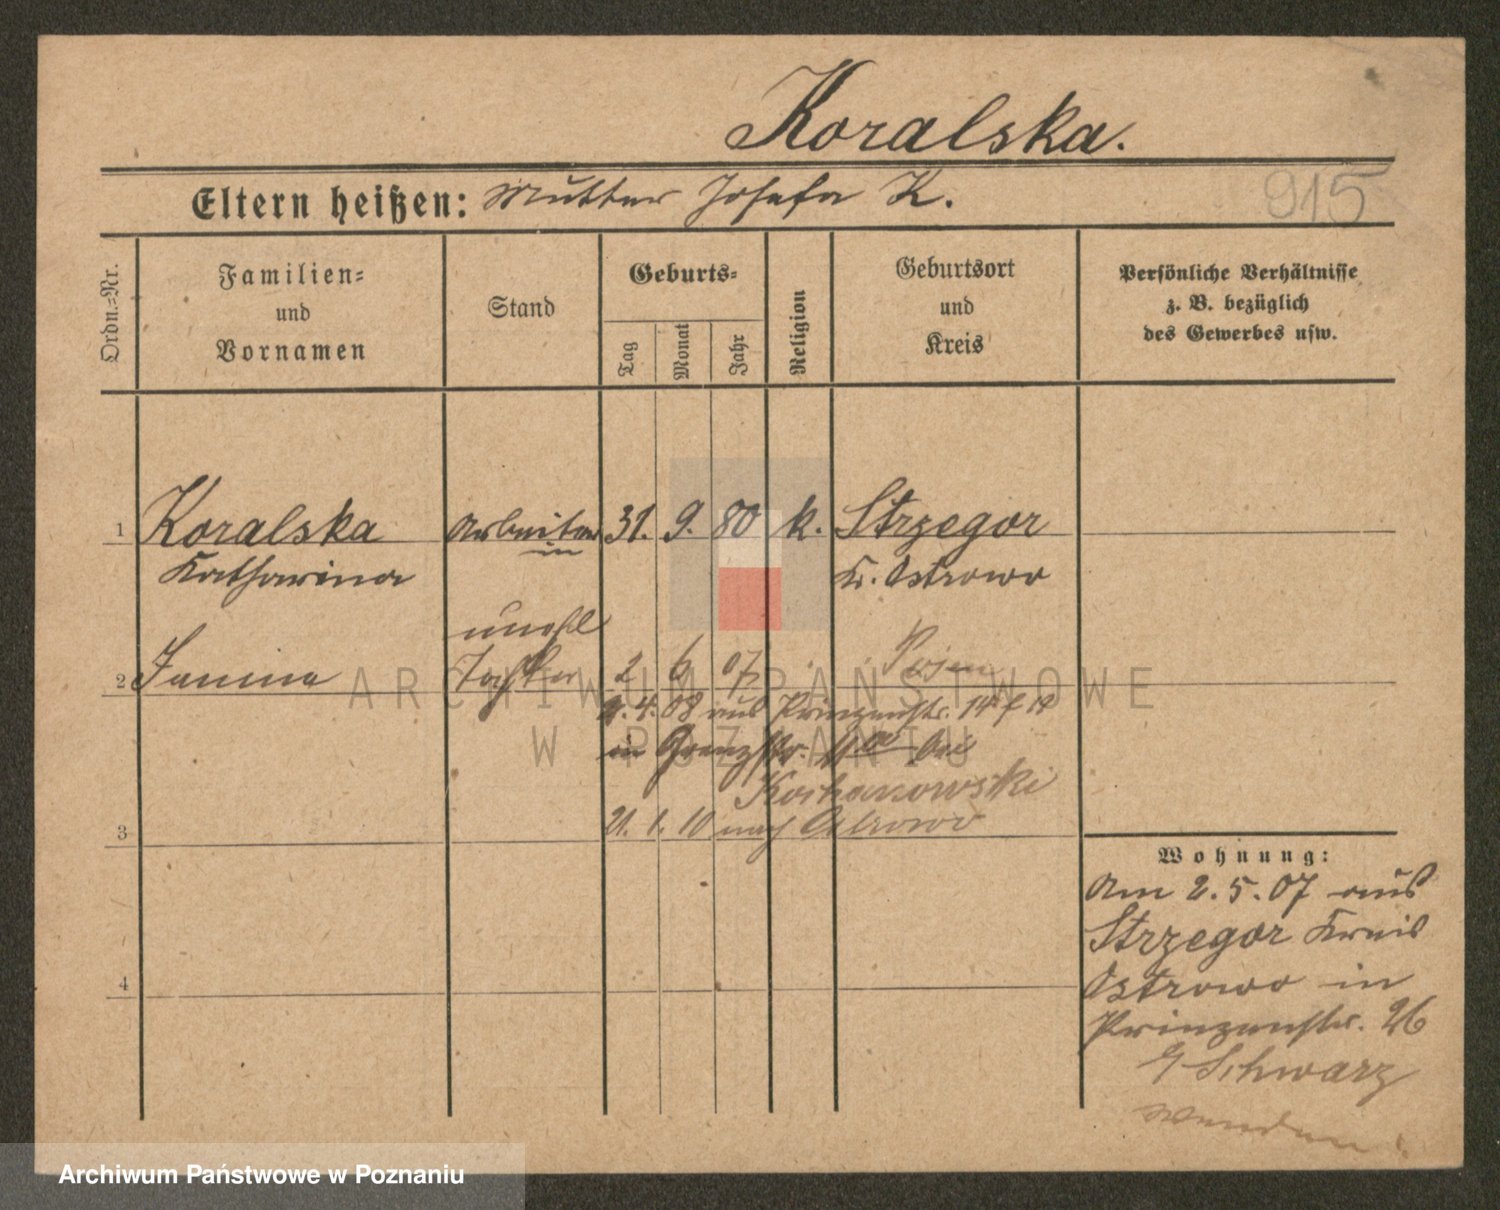 Koralska.
Eltern heißen: Mutter Josefa K.
915
Ordn.=Nr.
Familien=
und
Vornamen
Stand
Geburts=
Tag
Monat
Jahr
Religion
Geburtsort
und
Kreis
Persönliche Verhältnisse
z. B. bezüglich
des Gewerbes usw.
1 Koralska Arbeiter 31. 9. 80 k. Strzegor
in
Katharina Kr. Ostrowo
unehl
2 Janina Tochter 2 6 07 Posen
ARCHIWUM PAŃSTWOWE
W POZNANIU
4. 08 aus Prinzenstr. 14
in Grenzstr.
Kochanowski
3 21. 1. 10 nach Ostrowo
Wohnung:
Am 2.5.07 aus
Strzegor Kreis
4
Ostrowo in
Prinzenstr. 26
Schwarz
wenden!
Archiwum Państwowe w Poznaniu